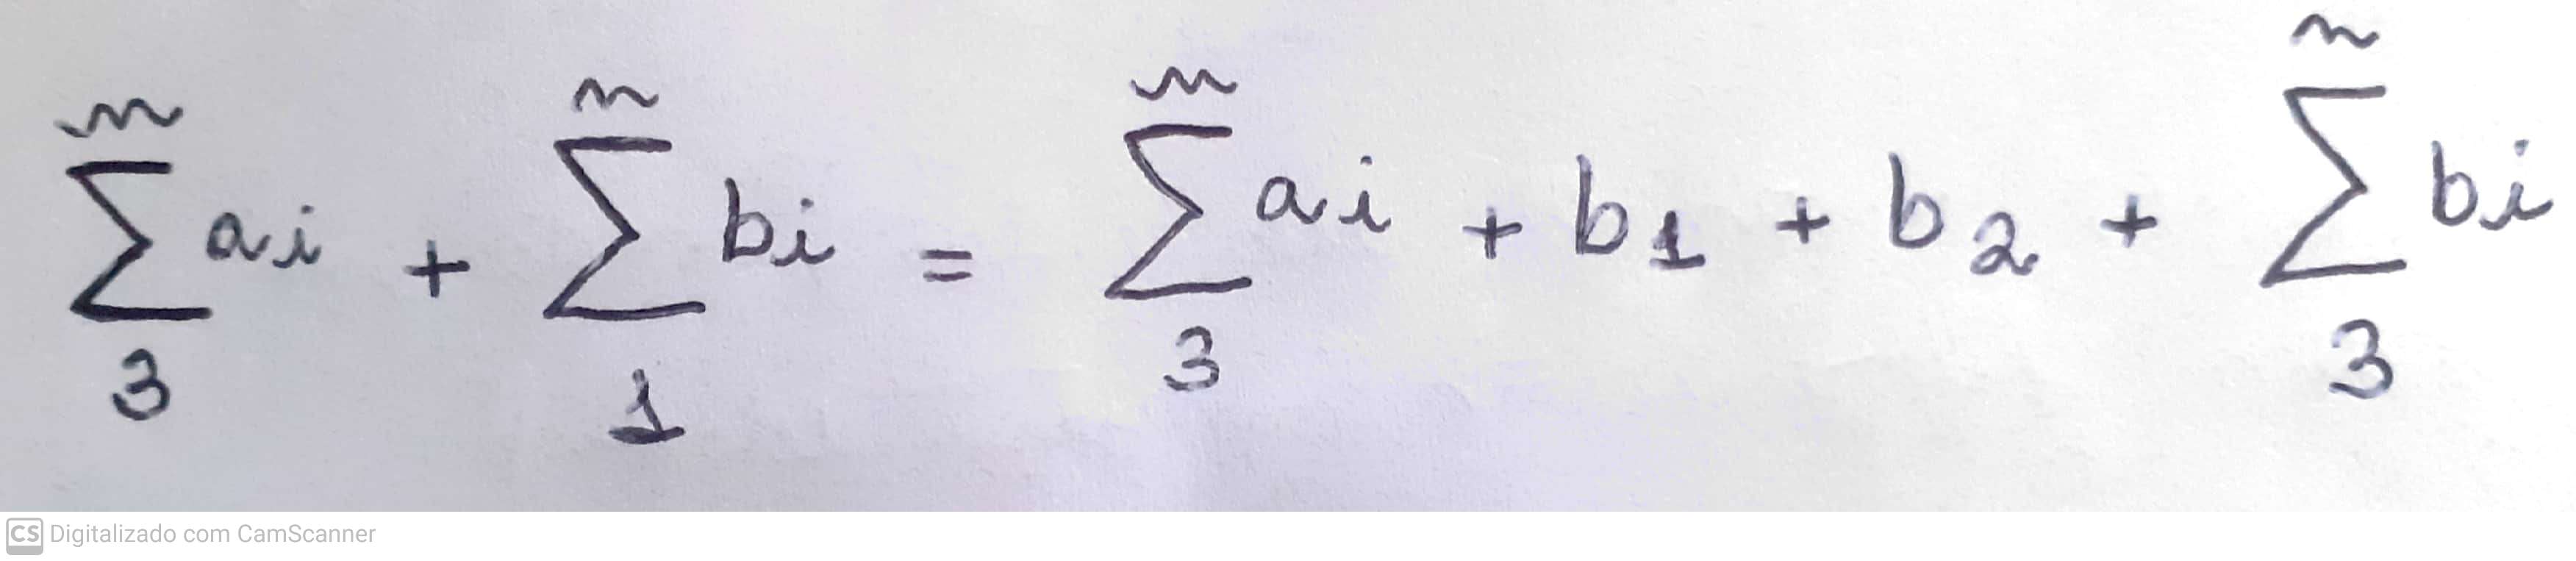 \sum_{3}^{m} a_i + \sum_{1}^{n} b_i = \sum_{3}^{m} a_i + b_1 + b_2 + \sum_{3}^{n} b_i
CS Digitalizado com CamScanner